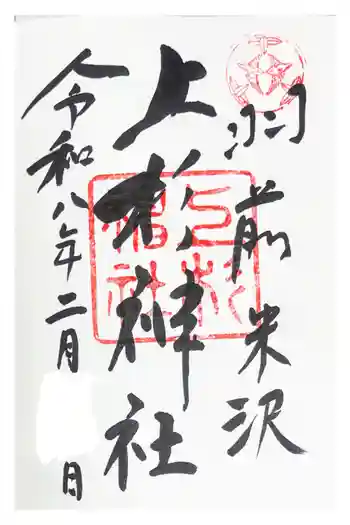 羽前米沢
上杉神社
令和八年二月 日
上杉神社